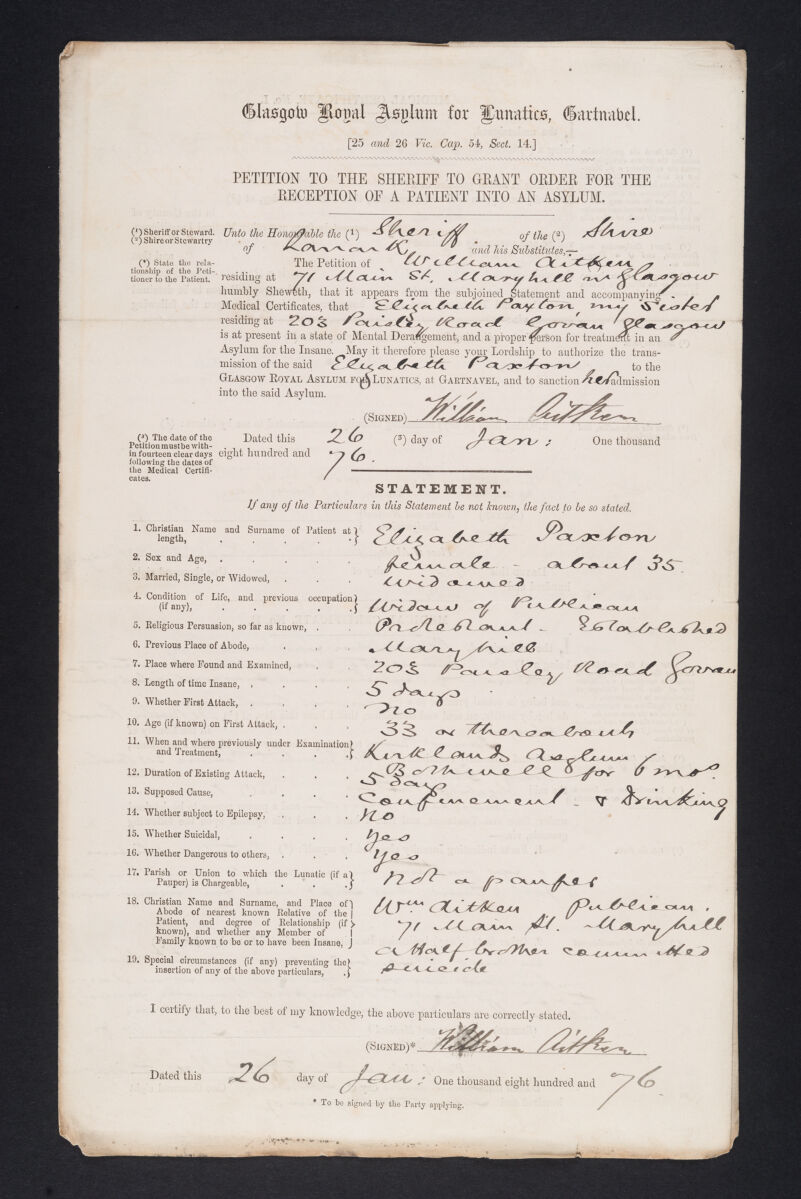 Glasgow Royal Asylum for Lunatics, Gartnavel.
[25 and 26 Vic. Cap. 54, Sect. 14.]
PETITION TO THE SHERIFF TO GRANT ORDER FOR THE
RECEPTION OF A PATIENT INTO AN ASYLUM.
(¹) Sheriff or Steward.
(²) Shire or Stewartry
Unto the Honourable the (1) Sheriff of the (2) Shire
of Lanark, and his Substitutes,—
(*) State the rela-
tionship of the Peti-
tioner to the Patient.
The Petition of William Aitken
residing at 71 Main St. Maryhill in Glasgow
humbly Sheweth, that it appears from the subjoined Statement and accompanying
Medical Certificates, that Elizabeth Paxton, my Sister
residing at 203 Paisley Road Govan Glasgow
is at present in a state of Mental Derangement, and a proper person for treatment in an
Asylum for the Insane. May it therefore please your Lordship to authorize the trans-
mission of the said Elizabeth Paxton to the
GLASGOW ROYAL ASYLUM FOR LUNATICS, at GARTNAVEL, and to sanction her admission
into the said Asylum.
(SIGNED) William Aitken
(³) The date of the
Petition must be with-
in fourteen clear days
following the dates of
the Medical Certifi-
cates.
Dated this 26 (³) day of Jan: One thousand
eight hundred and 76.
STATEMENT.
If any of the Particulars in this Statement be not known, the fact to be so stated.
1. Christian Name and Surname of Patient at
length, Elizabeth Paxton
2. Sex and Age, female - about 35.
3. Married, Single, or Widowed, widowed
4. Condition of Life, and previous occupation
(if any), Widow of Publican
5. Religious Persuasion, so far as known, Protestant - Established
6. Previous Place of Abode, Maryhill
7. Place where Found and Examined, 203 Paisley Road Govan
8. Length of time Insane, 5 days
9. Whether First Attack, no
10. Age (if known) on First Attack, 33 or thereabouts
11. When and where previously under Examination
and Treatment, Kirklands Asylum
Bothwell for 6 mos.
12. Duration of Existing Attack, 5 days
13. Supposed Cause, Confinement - & Drinking
14. Whether subject to Epilepsy, no
15. Whether Suicidal, yes
16. Whether Dangerous to others, yes
17. Parish or Union to which the Lunatic (if a
Pauper) is Chargeable, not a pauper
18. Christian Name and Surname, and Place of
Abode of nearest known Relative of the
Patient, and degree of Relationship (if
known), and whether any Member of
Family known to be or to have been Insane,
Wm Aitken Publican.
71 Main St. Maryhill
a Half brother committed
suicide
19. Special circumstances (if any) preventing the
insertion of any of the above particulars,
I certify that, to the best of my knowledge, the above particulars are correctly stated.
(SIGNED)* William Aitken
Dated this 26 day of Jan: One thousand eight hundred and 76.
* To be signed by the Party applying.